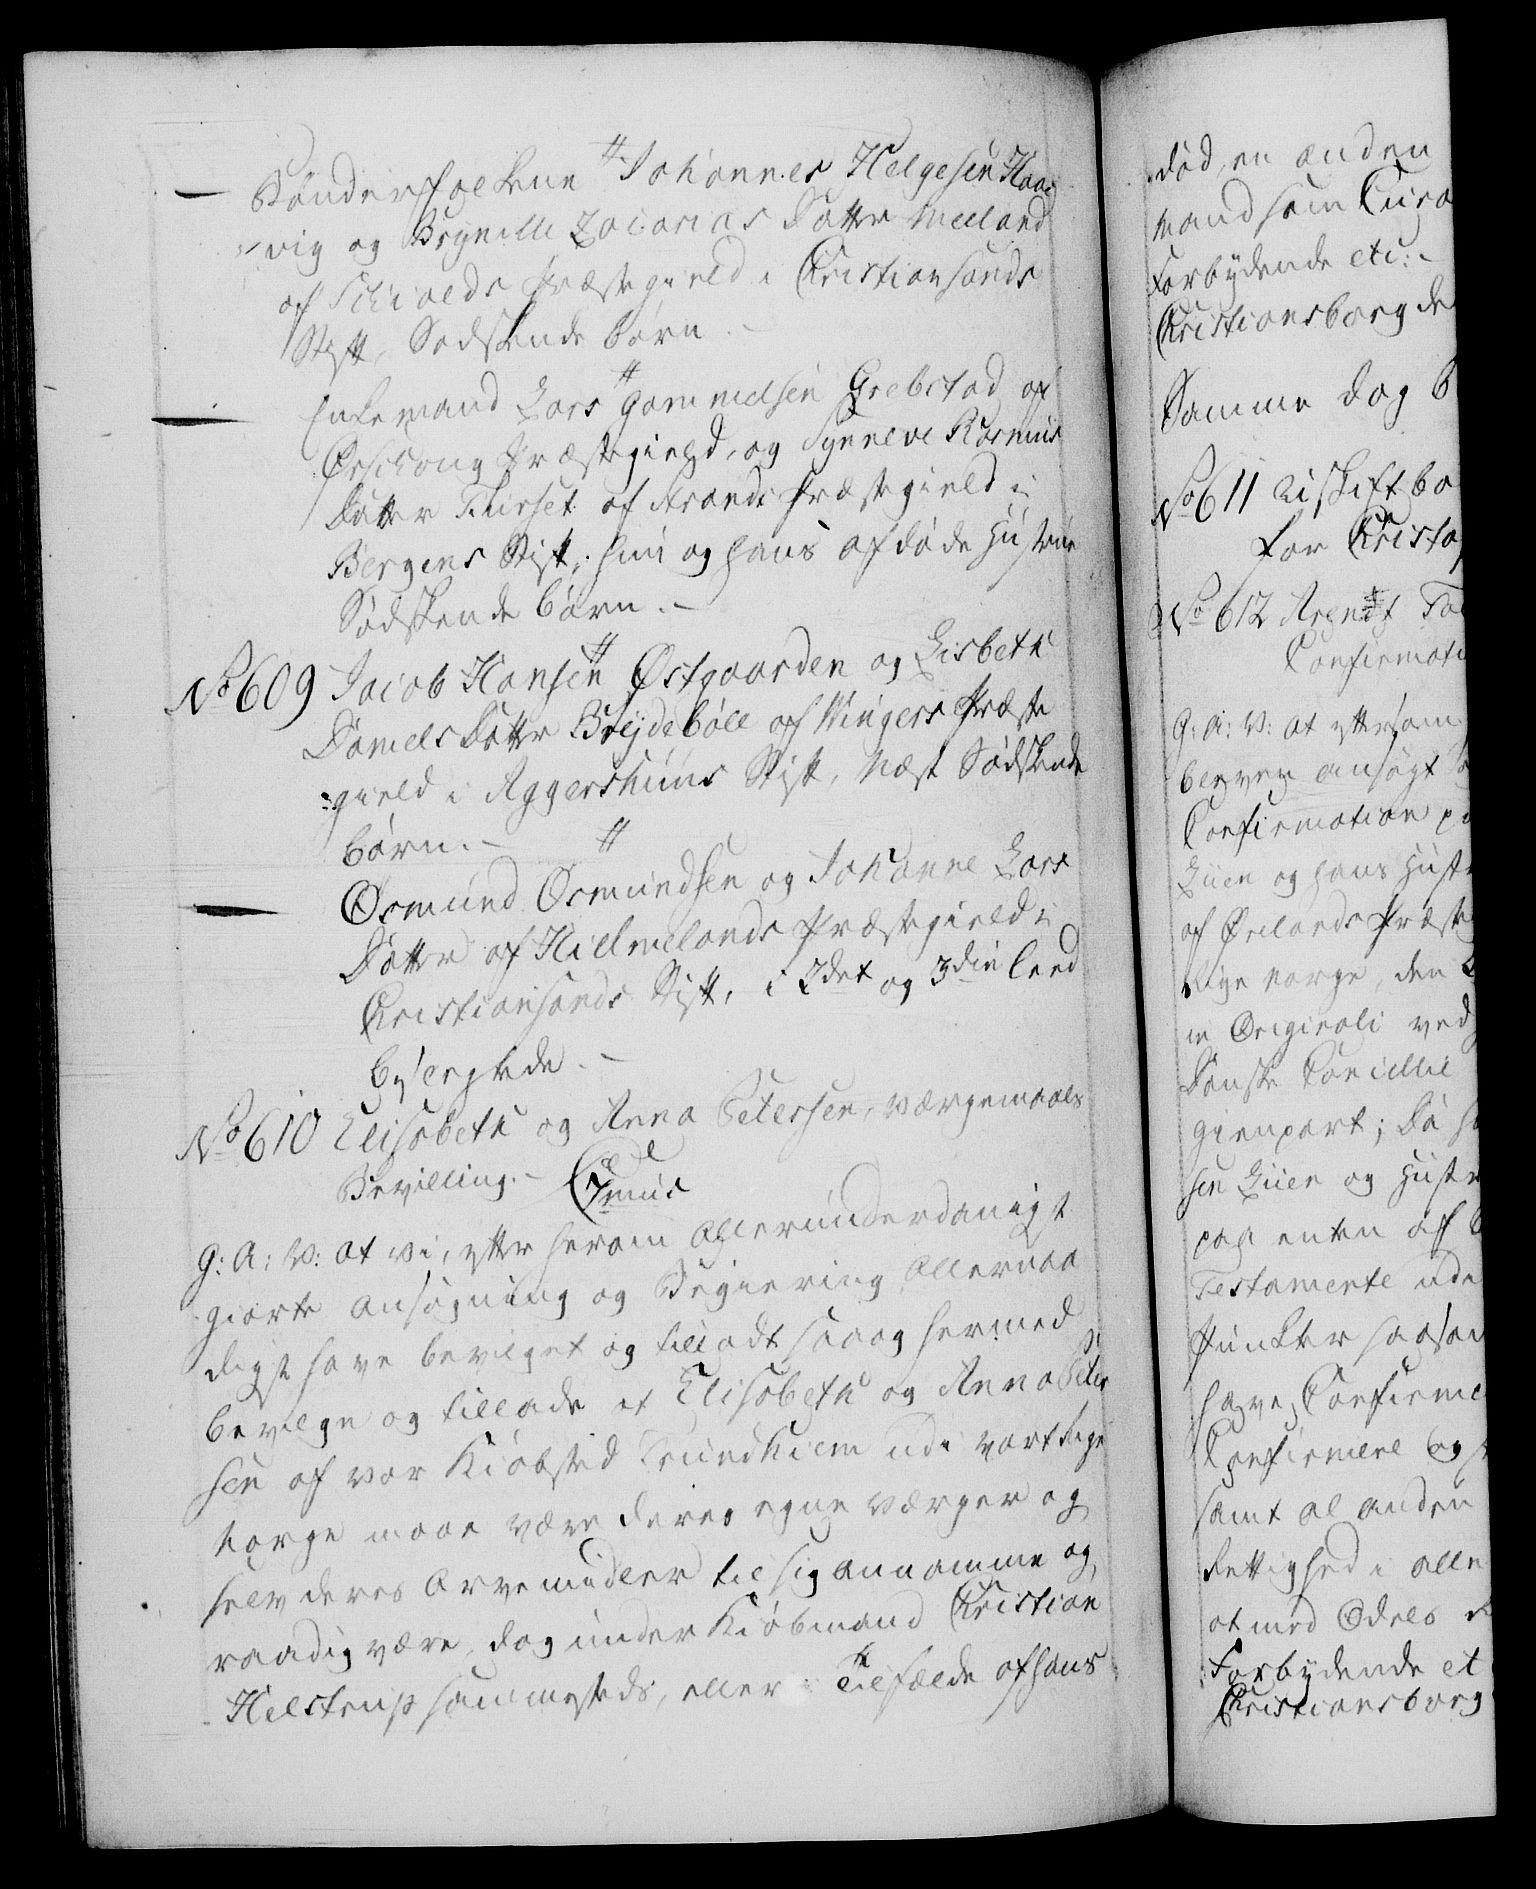 Bønderfolkene Johannes Helgesen Haae
vig og Brynille Zacarias Datter Meeland
af Schiolds Præstegield i Christiansands
Stift, Sødskendebørn.
Enkemand Lars Gammelsen Grebstad af
Ørschoug Præstegield, og Synneve Rasmus
Datter Thuset af Strands Præstegield i
Bergens Stift, hun og hans afdøde Hustrue
Sødskendebørn.
No 609 Jacob Hansen Østgaarden og Lisbeth
Daniels Datter Breydebøll af Wingers Præste
gield i Aggershuus Stift, Næst Sødskende
børn.
Osmund Osmundsen og Johanne Lars
Datter af Hielmelands Præstegield i
Christiansands Stift, i 2det og 3die Leed
beslegtede.
No 610 Elisabeth og Anna Petersen, Værgemaals
Bevilling.
G: A: V: at vi, efter herom allerunderdanigst
giorte Ansøgning og Begiering, allernaa
digst have bevilget og tilladt, saa og hermed
bevilge og tillade at Elisabeth og Anna Peter
sen af vor Kiøbsted Trundhiem udi vort Rige
Norge maae være deres egne Værger og
selv deres Arvemidler til sig annamme og
raadig være, dog under Kiøbmand Christian
Helstrup sammesteds, eller i Tilfælde af hans
død, en anden
Mand som Cura
Forbydende etc:
Christiansborg de
Samme Dag b
No 611 Uskiftbo
for Christo
No 612 Arendt
Confirmati
G: A: V: at eftersom
begver ansøgt
Confirmation p
Lien og hans Hustr
af Ørelands Præste
Rige Norge, den
in Originali ved
Danske Cancellie
Gienpart; Da ha
sen Lien og Hustr
paa enten af
Testamente udi
Puncter saasom
have, Confirme
Confirmere og
samt al anden
Rettighed i alle
at med Odels
Forbydende et
Christiansborg